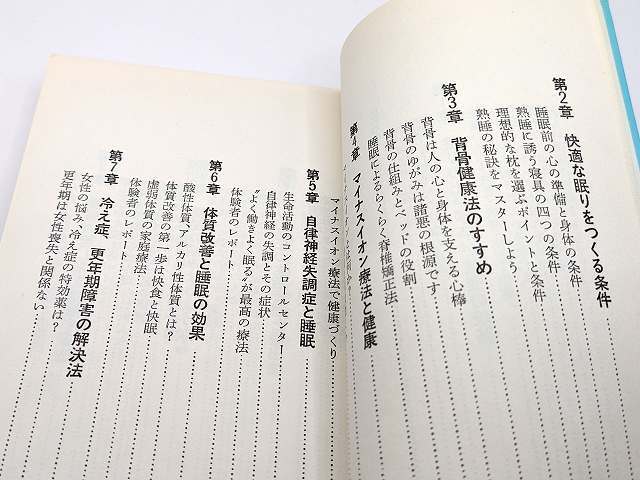 第2章 快適な眠りをつくる条件
睡眠前の心の準備と身体の条件
熟睡に誘う寝具の四つの条件
理想的な枕を選ぶポイントと条件
熟睡の秘訣をマスターしよう
第3章 背骨健康法のすすめ
背骨は人の心と身体を支える心棒
背骨のゆがみは諸悪の根源です
背骨の仕組みとベッドの役割
睡眠によるらくらく脊椎矯正法
第4章 マイナスイオン療法と健康
マイナスイオン療法で健康づくり
第5章 自律神経失調症と睡眠
生命活動のコントロールセンター
自律神経の失調とその症状
“よく働きよく眠る”が最高の療法
体験者のレポート
第6章 体質改善と睡眠の効果
酸性体質、アルカリ性体質とは?
体質改善の第一歩は快食と快眠
虚弱体質の家庭療法
体験者のレポート
第7章 冷え症、更年期障害の解決法
女性の悩み・冷え症の特効薬は?
更年期は女性喪失と関係ない